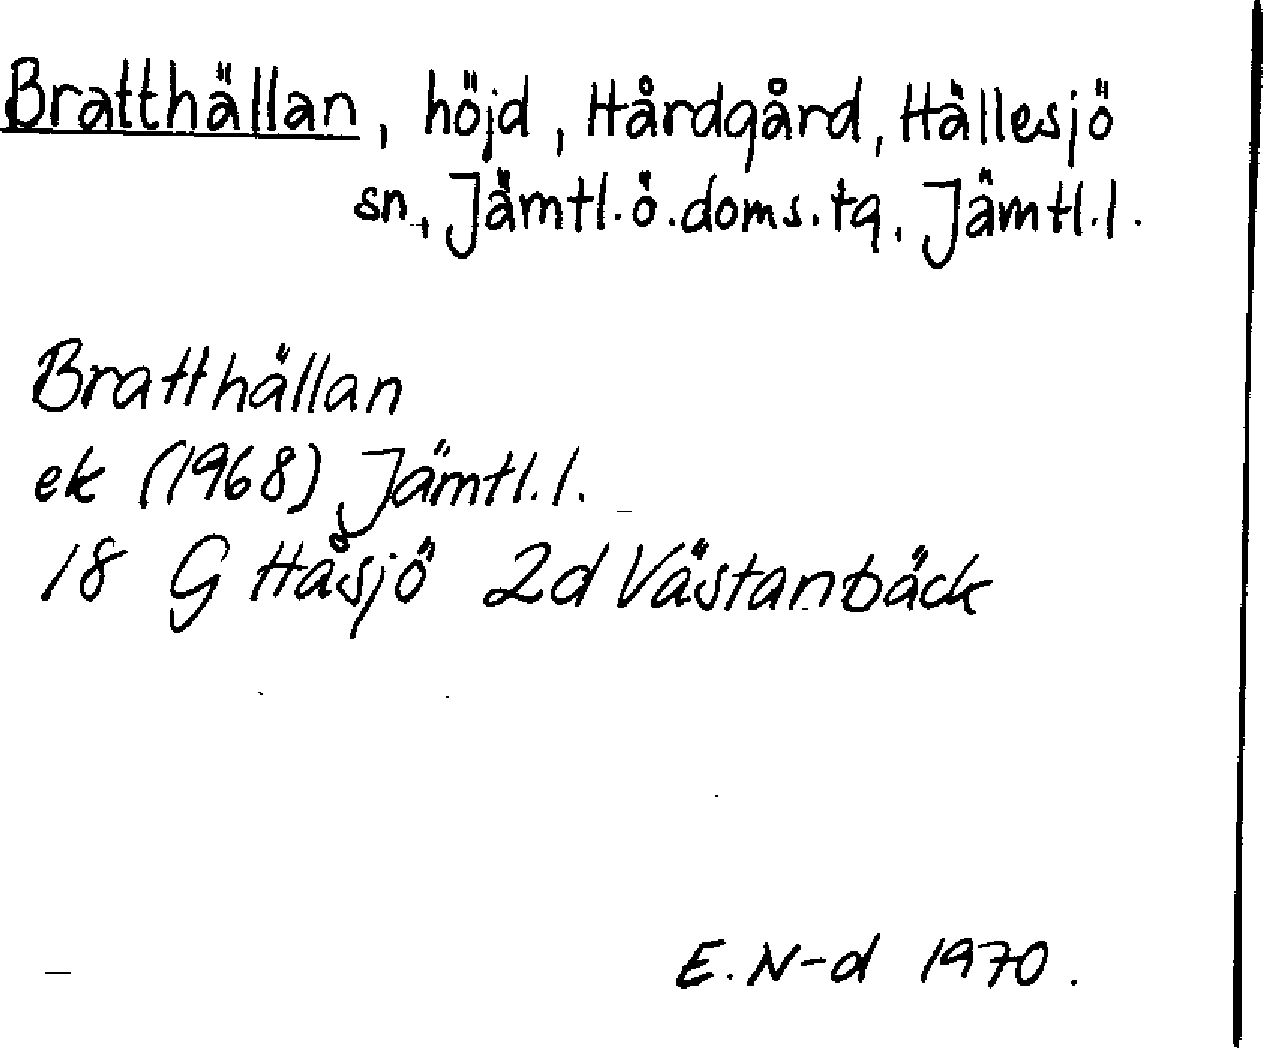 Bratthällan, höjd, Hårdgård, Hällesjö
sn., Jämtl. ö. doms. tg, Jämtl. l.
Bratthällan
ek (1968) Jämtl. l.
18 G Håsjö 2d Västanbäck
E. N-d 1970.